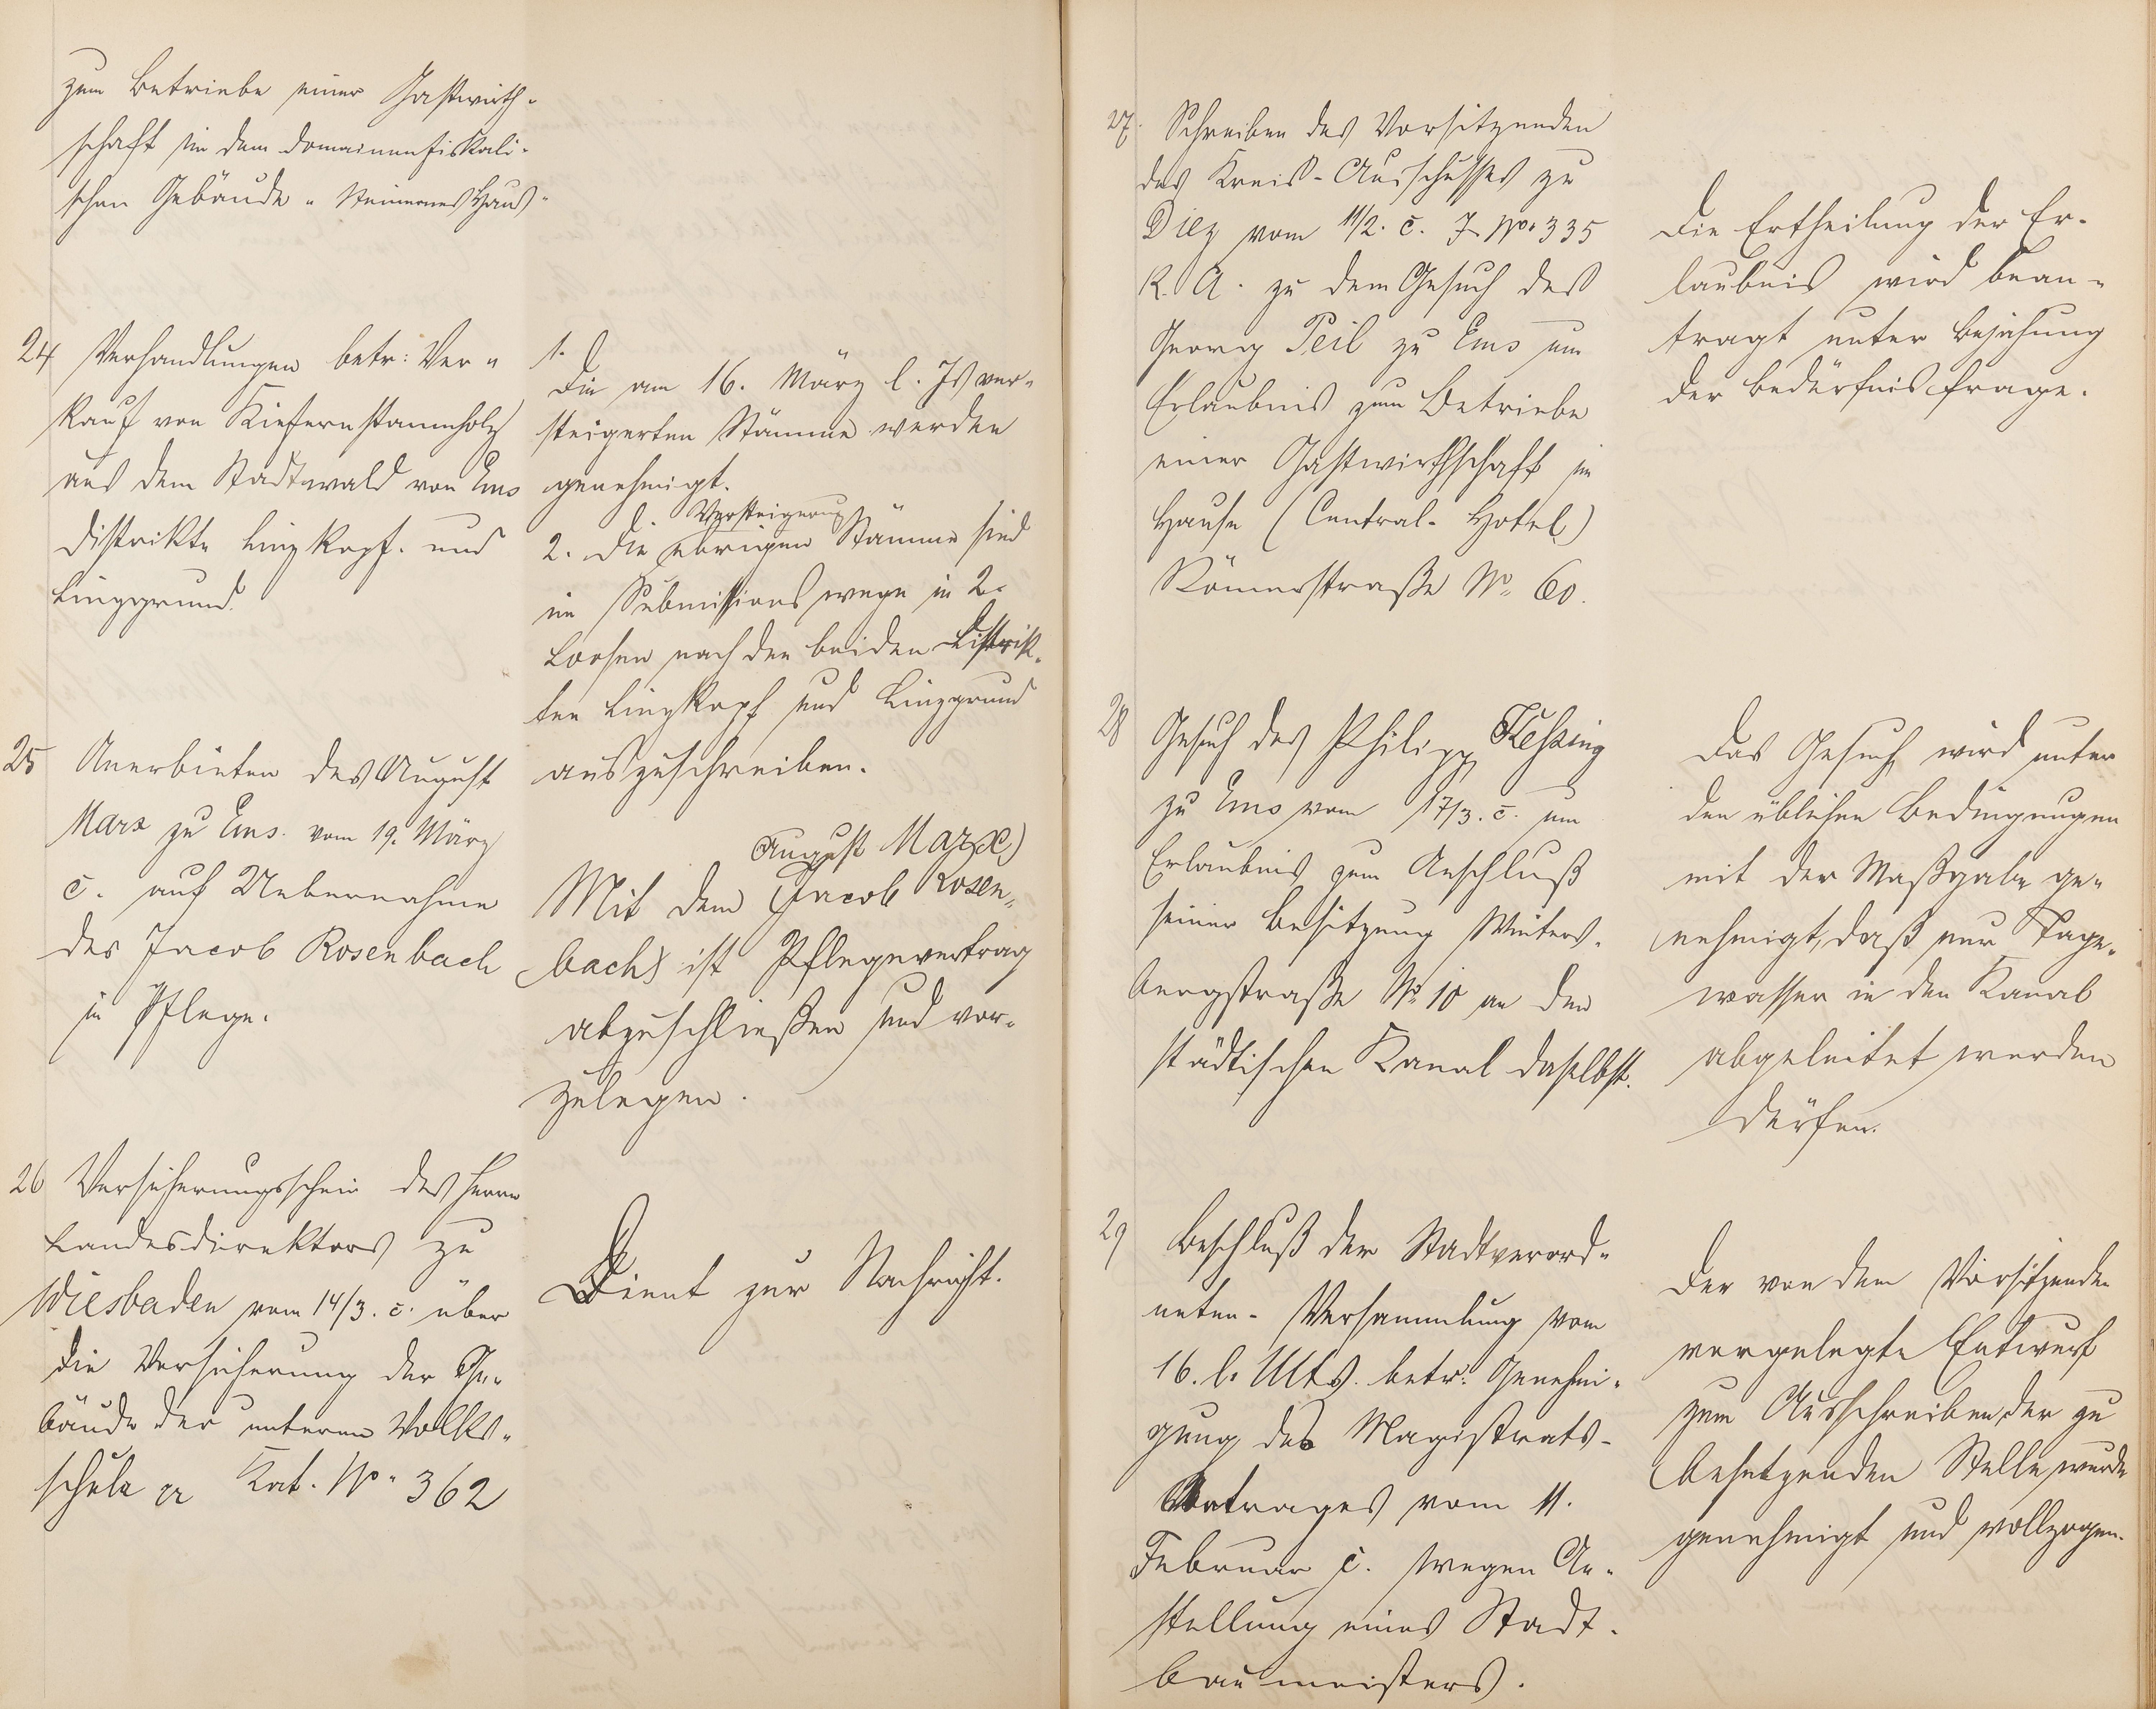 zum Betriebe einer Gastwirth-
schaft in dem domainenfiskali-
schen Gebäude "Steinernes Haus"
24 Verhandlungen betr: Ver-
kauf von Kiefernstammholz
aus dem Stadtwald von Ems
Distrikte Linzkopf und
Linzgrund.
1.
Die am 16. März l. Js ver-
steigerten Stämme werden
genehmigt.
Versteigerung
2. Die übrigen Stämme sind
im Submissionswege in 2
Loosen nach den beiden Distrik-
ten Linzkopf und Linzgrund
auszuschreiben.
25 Anerbieten des August
Marx zu Ems vom 19. März
c. auf Uebernahme
des Jacob Rosenbach
in Pflege.
August Marx)
Mit dem (Jacob Rosen-
bach) ist Pflegevertrag
abzuschließen und vor-
zulegen.
26 Versicherungsschein des Herrn
Landesdirektors zu
Wiesbaden vom 14/3. c. über
die Versicherung der Ge-
bäude der unteren Volks-
schule Kat. No. 362
Dient zur Nachricht.
27. Schreiben des Vorsitzenden
des Kreis-Ausschusses zu
Diez vom 11/2. c. J. No. 335
K. A. zu dem Gesuch des
Georg Peil zu Ems um
Erlaubnis zum Betriebe
einer Gastwirthschaft im
Hause (Central-Hotel)
Römerstraße No. 60.
Die Ertheilung der Er-
laubnis wird bean-
tragt unter Bejahung
der Bedürfnisfrage.
28 Gesuch des Philipp
zu Ems vom 17/3. c. um
Erlaubnis zum Anschluß
seiner Besitzung Winters-
bergstraße No. 10 an den
städtischen Kanal daselbst.
Das Gesuch wird unter
den üblichen Bedingungen
mit der Maßgabe ge-
nehmigt, daß nur Tage-
wasser in den Kanal
abgeleitet werden
dürfen.
29 Beschluß der Stadtverord-
neten-Versammlung vom
16. l. Mts. betr. Genehmi-
gung des Magistrats-
Antrages vom 11.
Februar c. wegen An-
stellung eines Stadt-
baumeisters.
Der von dem Vorsitzenden
vorgelegte Entwurf
zum Ausschreiben der zu
besetzenden Stelle wurde
genehmigt und vollzogen.